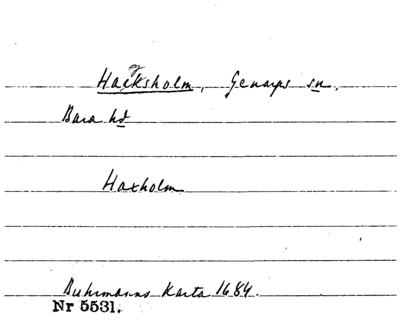 Hacksholm, Genarps sn,
Bara hd
Haxholm
Buhrmanns Karta 1684.
Nr 5531.